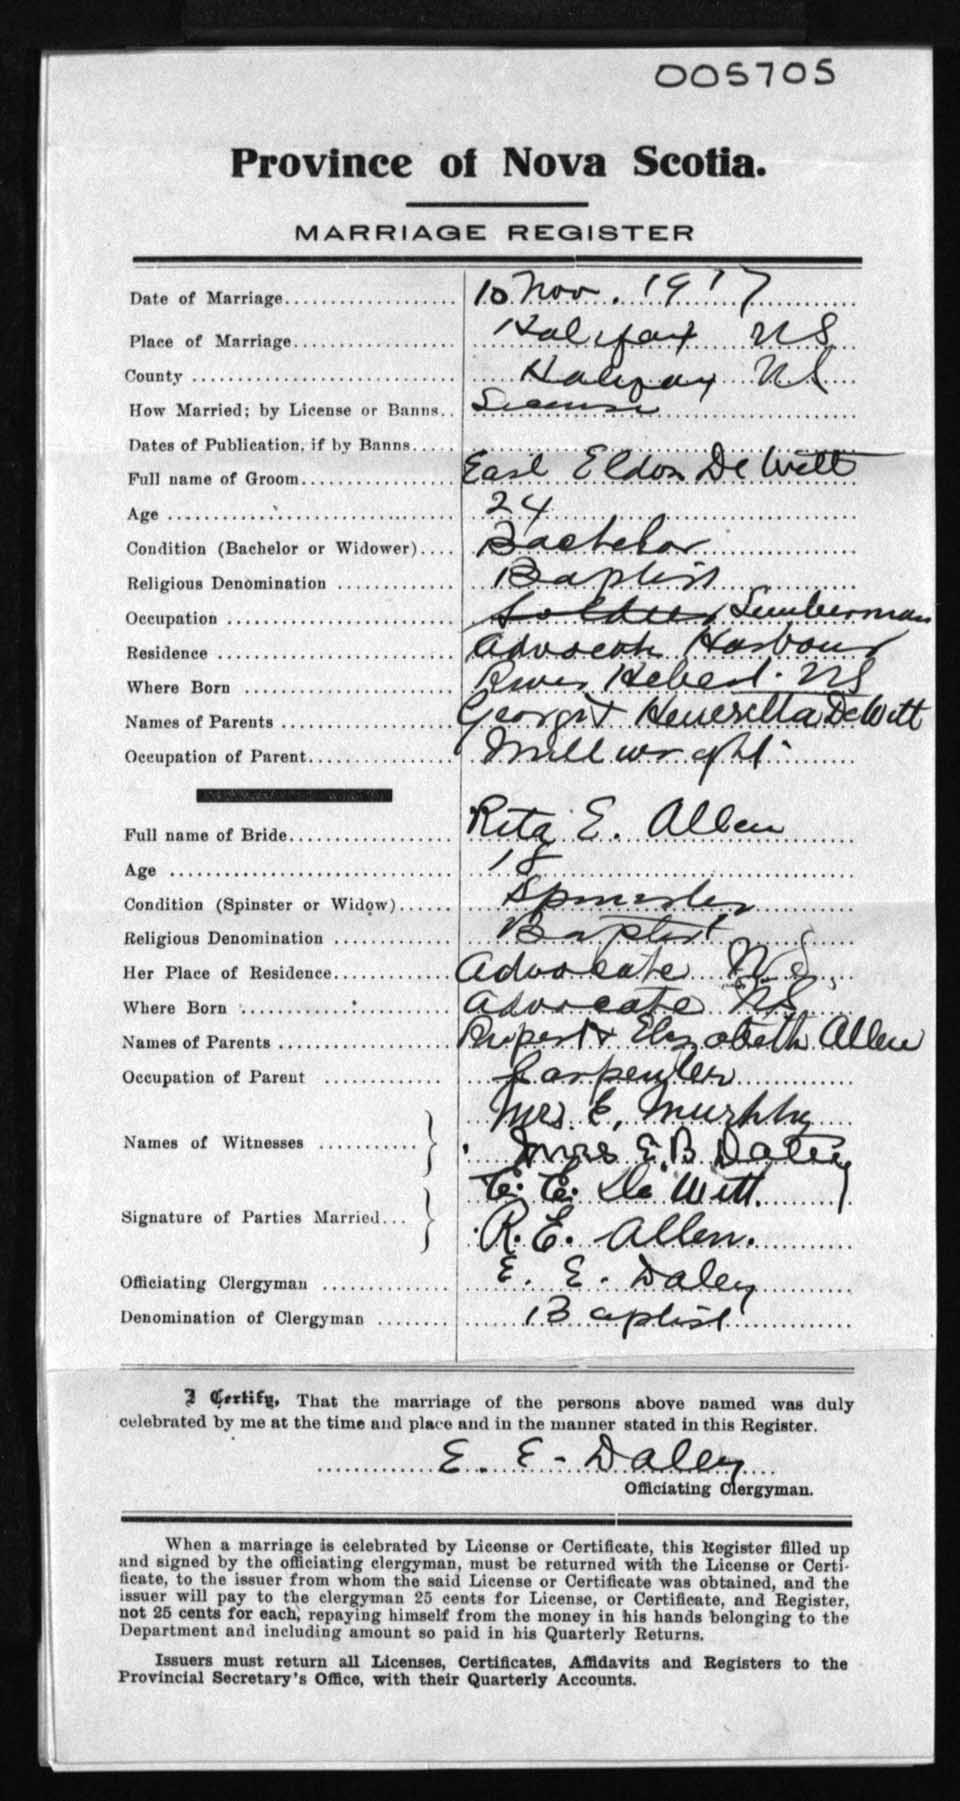 005705
Province of Nova Scotia.
MARRIAGE REGISTER
Date of Marriage................... 10 Nov. 1917
Place of Marriage.................. Halifax NS
County ............................. Halifax NS
How Married; by License or Banns.. License
Dates of Publication, if by Banns.....
Full name of Groom................. Earl Eldon DeWitt
Age ................................ 24
Condition (Bachelor or Widower).... Bachelor
Religious Denomination ............. Baptist
Occupation ......................... Soldier Lumberman
Residence .......................... Advocate Harbour
Where Born ....................... River Hebert. NS
Names of Parents ................... George + Henerietta DeWitt
Occupation of Parent................ Millwright
Full name of Bride.................. Rita E. Allen
Age ............................... 18
Condition (Spinster or Widow)...... Spinster
Religious Denomination ............. Baptist
Her Place of Residence............. Advocate N S.
Where Born ........................ Advocate NS.
Names of Parents ................... Rupert + Elizabeth Allen
Occupation of Parent ............. Carpenter
Names of Witnesses ........... } Mrs. E. Murphy
Mrs E. B. Daley
Signature of Parties Married... } E. E. De Witt.
R. E. Allen.
Officiating Clergyman .............. E. E. Daley
Denomination of Clergyman ........ Baptist
I Certify, That the marriage of the persons above named was duly
celebrated by me at the time and place and in the manner stated in this Register.
E. E. Daley
Officiating Clergyman.
When a marriage is celebrated by License or Certificate, this Register filled up
and signed by the officiating clergyman, must be returned with the License or Certi-
ficate, to the issuer from whom the said License or Certificate was obtained, and the
issuer will pay to the clergyman 25 cents for License, or Certificate, and Register,
not 25 cents for each, repaying himself from the money in his hands belonging to the
Department and including amount so paid in his Quarterly Returns.
Issuers must return all Licenses, Certificates, Affidavits and Registers to the
Provincial Secretary's Office, with their Quarterly Accounts.